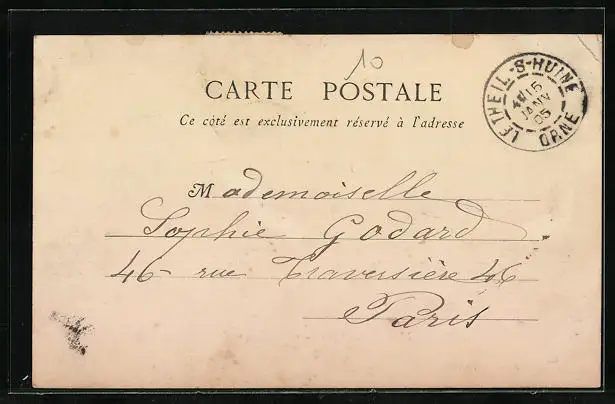 10
CARTE POSTALE
Ce côté est exclusivement réservé à l'adresse
LE THEIL-S-HUINE
15
JANV
05
ORNE
Mademoiselle
Sophie Godard
46 rue Traversière 46
Paris